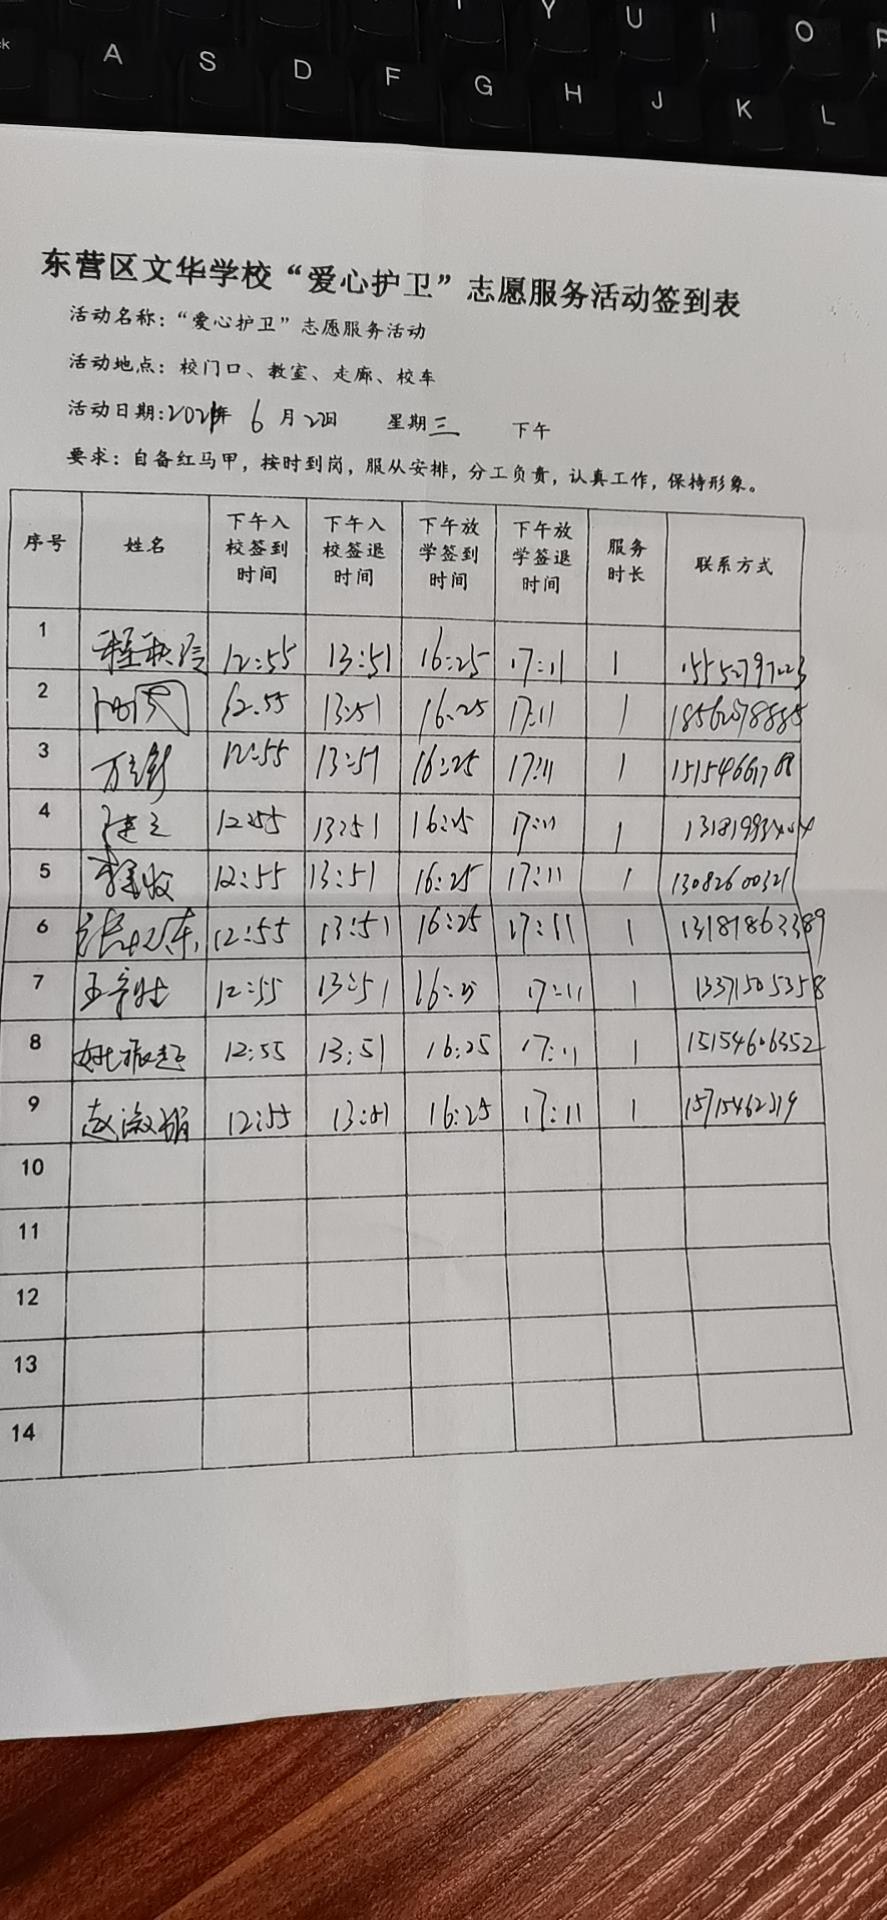 A S D F G H J K L
Y U I O
东营区文华学校“爱心护卫”志愿服务活动签到表
活动名称：“爱心护卫”志愿服务活动
活动地点：校门口、教室、走廊、校车
活动日期：年 6 月 日 星期三 下午
要求：自备红马甲，按时到岗，服从安排，分工负责，认真工作，保持形象。
序号 姓名 下午入校签到时间 下午入校签退时间 下午放学签到时间 下午放学签退时间 服务时长 联系方式
1 12:55 13:51 16:25 17:11 1
2 12:55 13:51 16:25 17:11 1
3 12:55 13:51 16:25 17:11 1
4 12:55 13:51 16:25 17:11 1
5 12:55 13:51 16:25 17:11 1 13082600321
6 12:55 13:51 16:25 17:11 1 13181863389
7 12:55 13:51 16:25 17:11 1 13371505358
8 姚振起 12:55 13:51 16:25 17:11 1 15154606352
9 赵淑娟 12:55 13:51 16:25 17:11 1
10
11
12
13
14